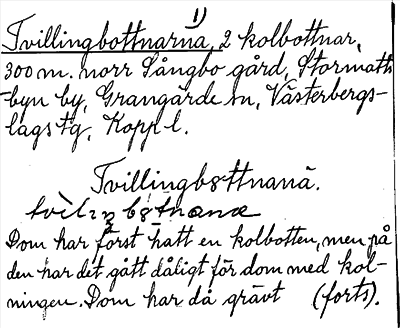 Tvillingbottnarna, 1) 2 kolbottnar,
300 m. norr Sångbo gård, Stormatts-
byn by, Grangärde sn, Västerbergs-
lags tg, Kopp l.
Tvillingbottnanä.
Dom har först hatt en kolbotten, men på
den har det gått dåligt för dom med kol-
ningen. Dom har då grävt (forts).